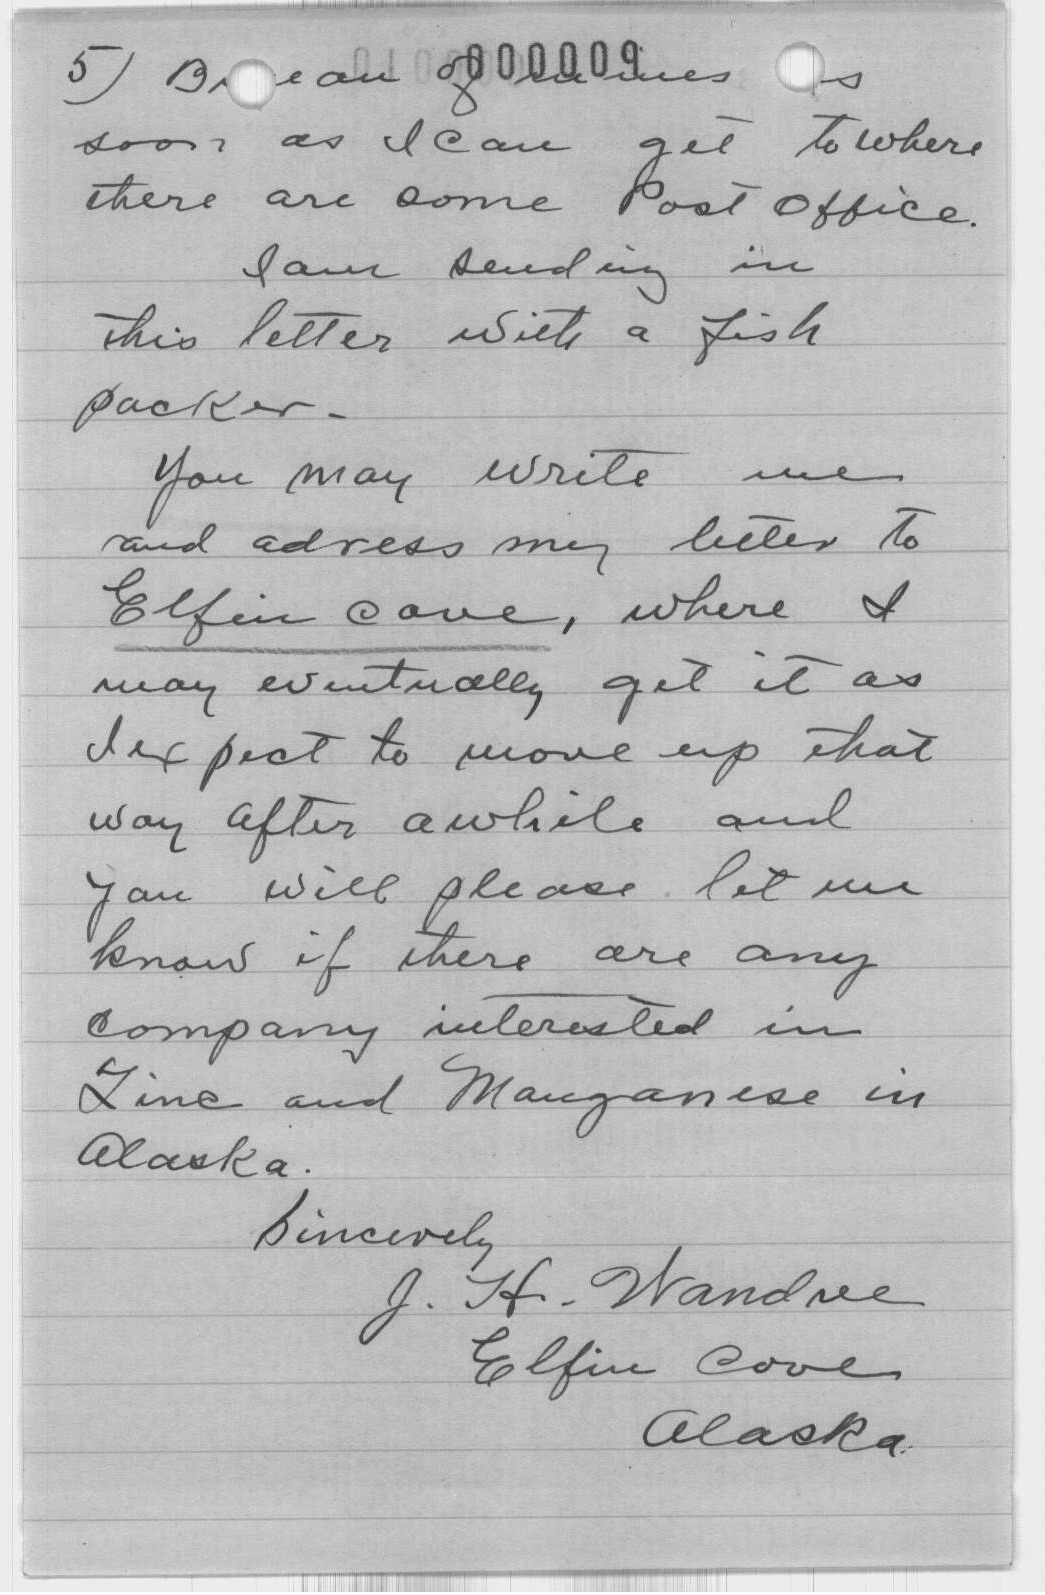 000009
5) Bureau of mines as
soon as I can get to where
there are some Post Office.
I am sending in
this letter with a fish
packer -
You may write me
and adress my letter to
Elfin cove, where I
may eventually get it as
I expect to move up that
way after awhile and
you will please let me
know if there are any
company interested in
Zinc and Manganese in
Alaska.
Sincerely
J. H. Wandree
Elfin Cove
Alaska.